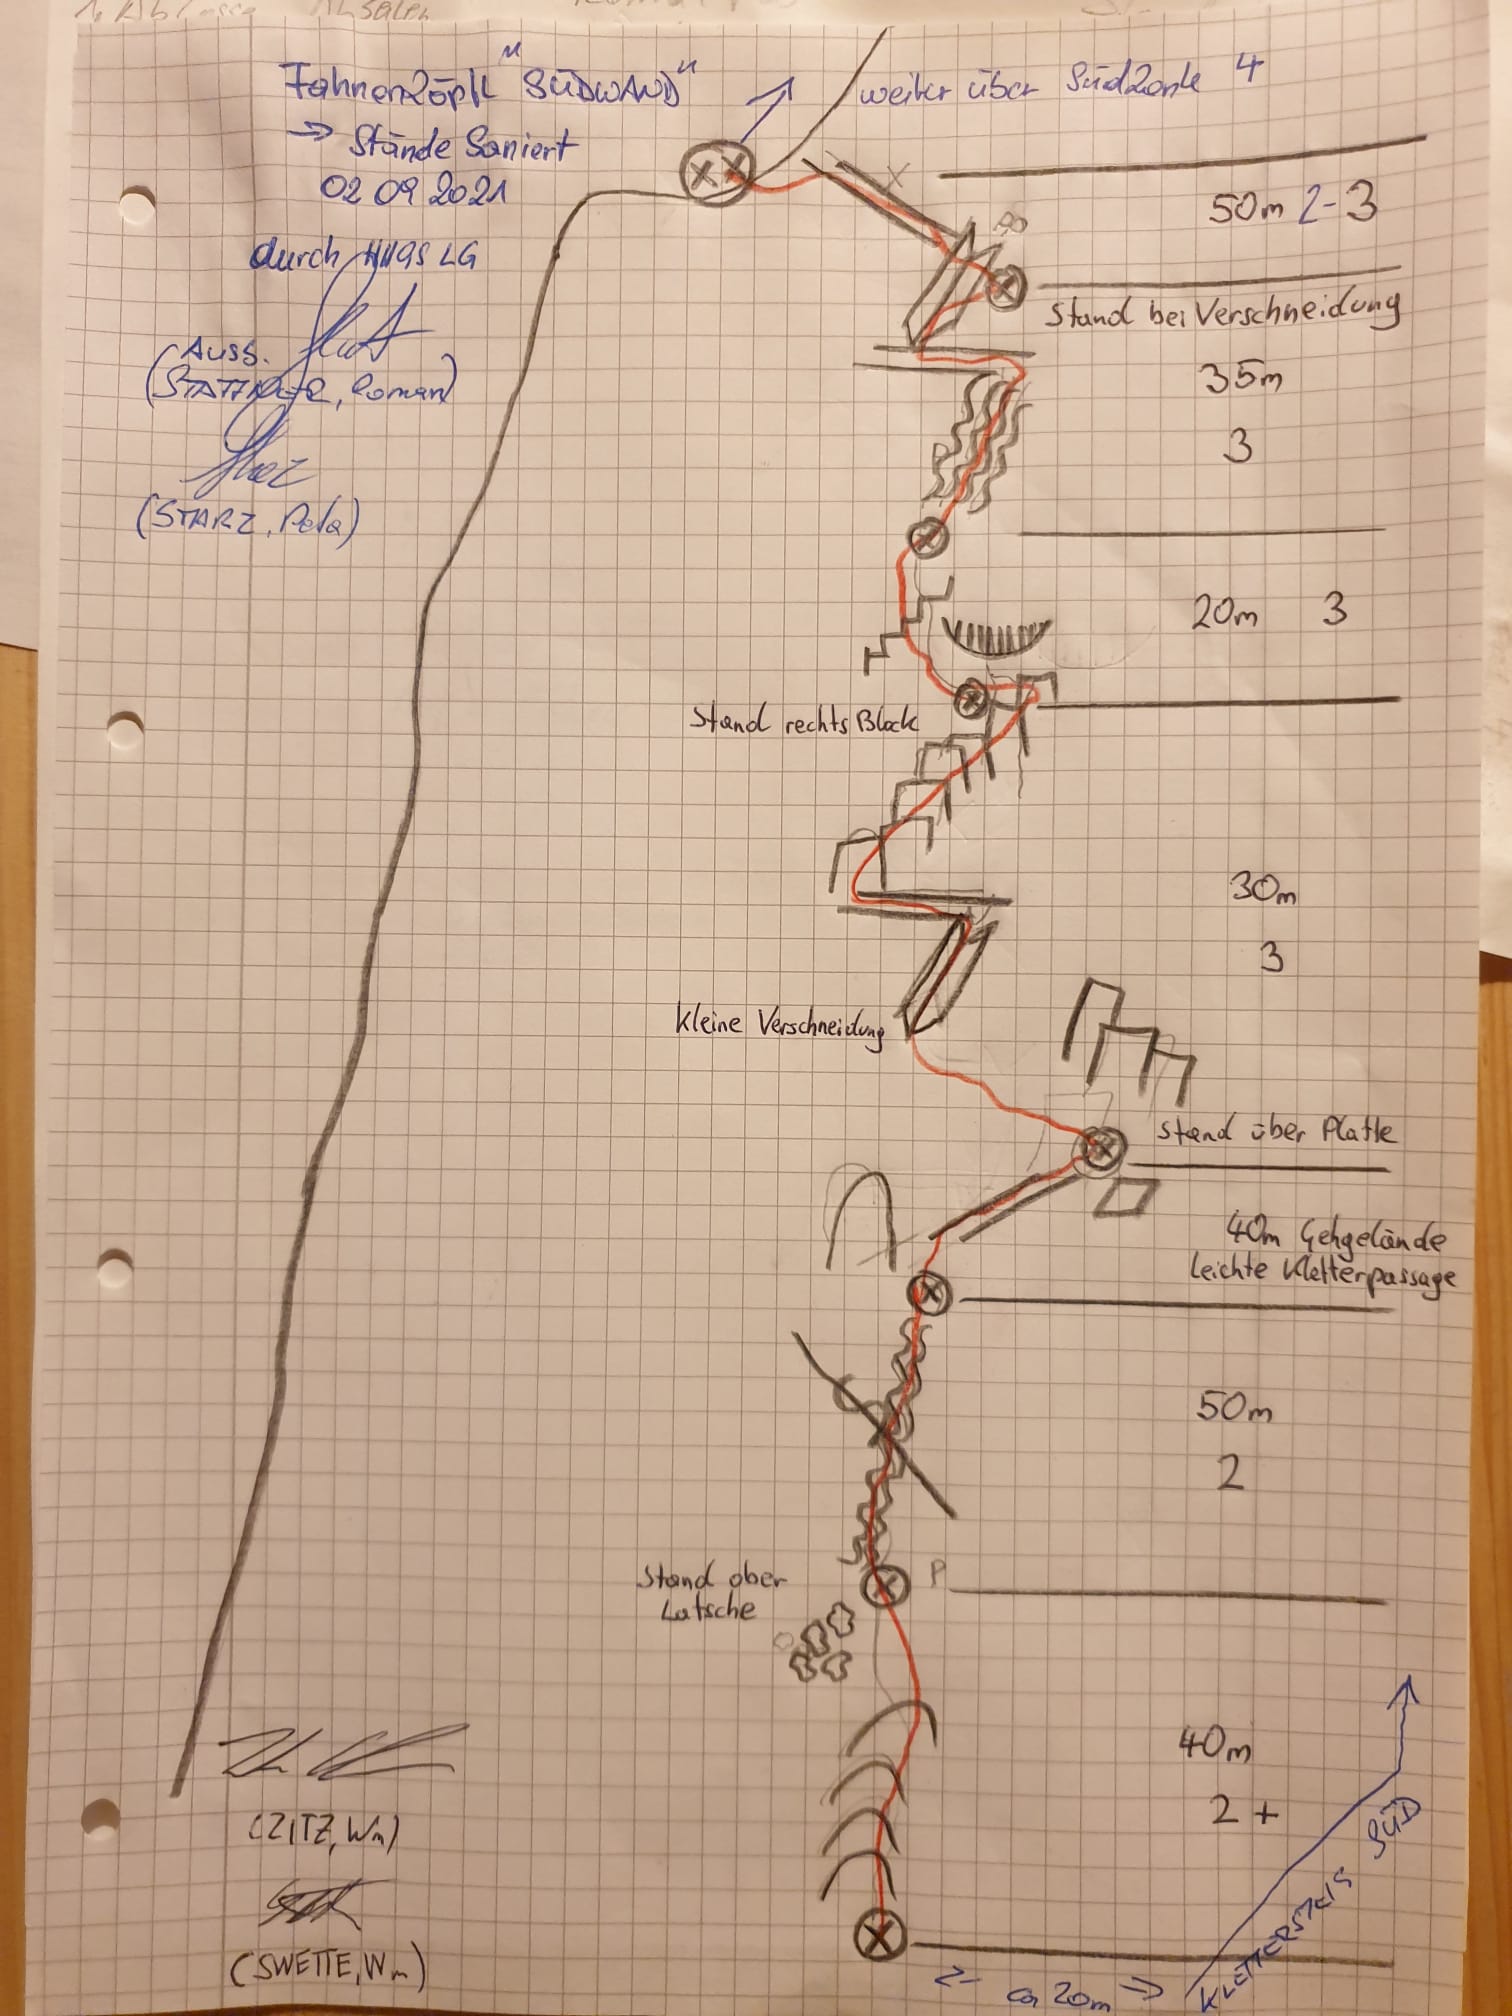 "SÜDWAND"
weiter über Südkante 4
→ Stände Saniert
02 09 2021
durch
LG
50m 2-3
Stand bei Verschneidung
Ausb.
Roman)
35m
3
(STARZ,
20m 3
Stand rechts Block
30m
3
kleine Verschneidung
Stand über Platte
40m Gehgelände
Leichte Kletterpassage
50m
2
Stand ober
Latsche
P
40m
2+
(ZITZ, Wm)
(SWETTE, Wm)
KLETTERSTEIG SÜD
ca 20m